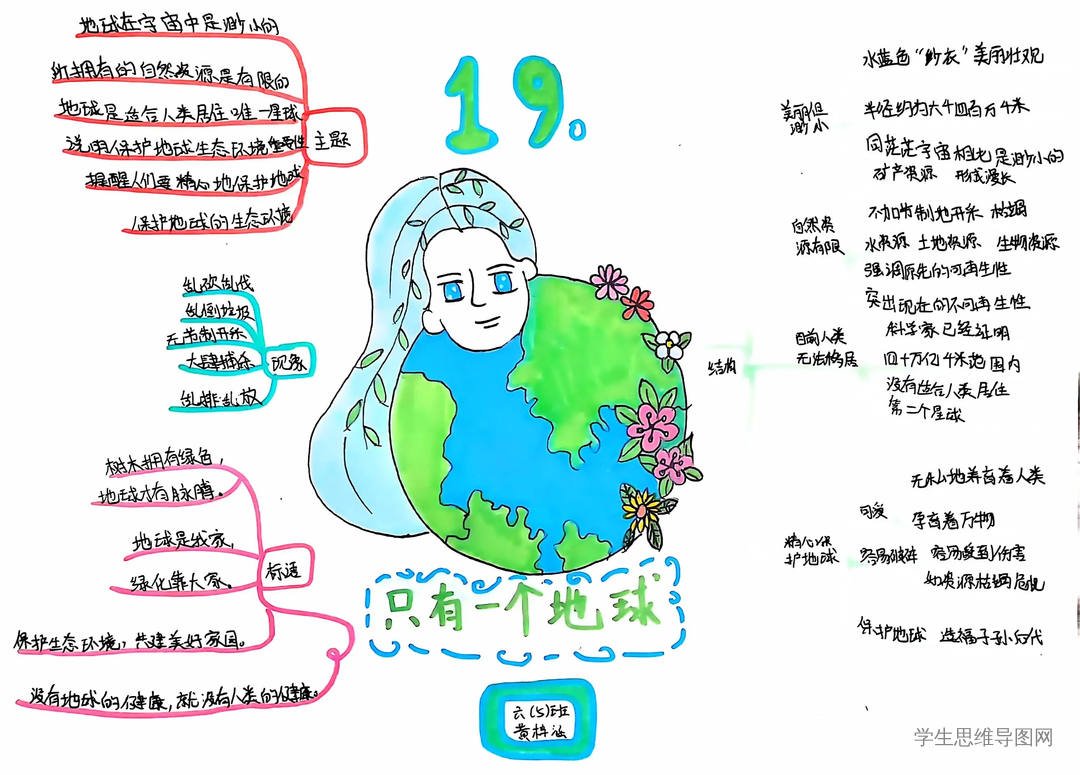 19。
地球在宇宙中是渺小的
所拥有的自然资源是有限的
地球是适合人类居住唯一星球
说明保护地球生态环境重要性
提醒人们要精心地保护地球
保护地球的生态环境
主题
乱砍乱伐
乱倒垃圾
无节制开采
大肆捕杀
乱排乱放
现象
树木拥有绿色，
地球才有脉膊。
地球是我家，
绿化靠大家。
保护生态环境，共建美好家园。
没有地球的健康，就没有人类的健康。
标语
只有一个地球
六(5)班
黄梓涵
结构
美丽但
渺小
水蓝色“纱衣”美丽壮观
半径约为六千四百万千米
同茫茫宇宙相比是渺小的
自然资
源有限
矿产资源 形成漫长
不加节制地开采 枯竭
水资源 土地资源 生物资源
强调原先的可再生性
突出现在的不可再生性
目前人类
无法移居
科学家已经证明
四十万亿千米范围内
没有适合人类居住
第二个星球
精心保
护地球
可爱
无私地养育着人类
孕育着万物
容易破碎 容易受到伤害
如资源枯竭危机
保护地球 造福子孙后代
学生思维导图网